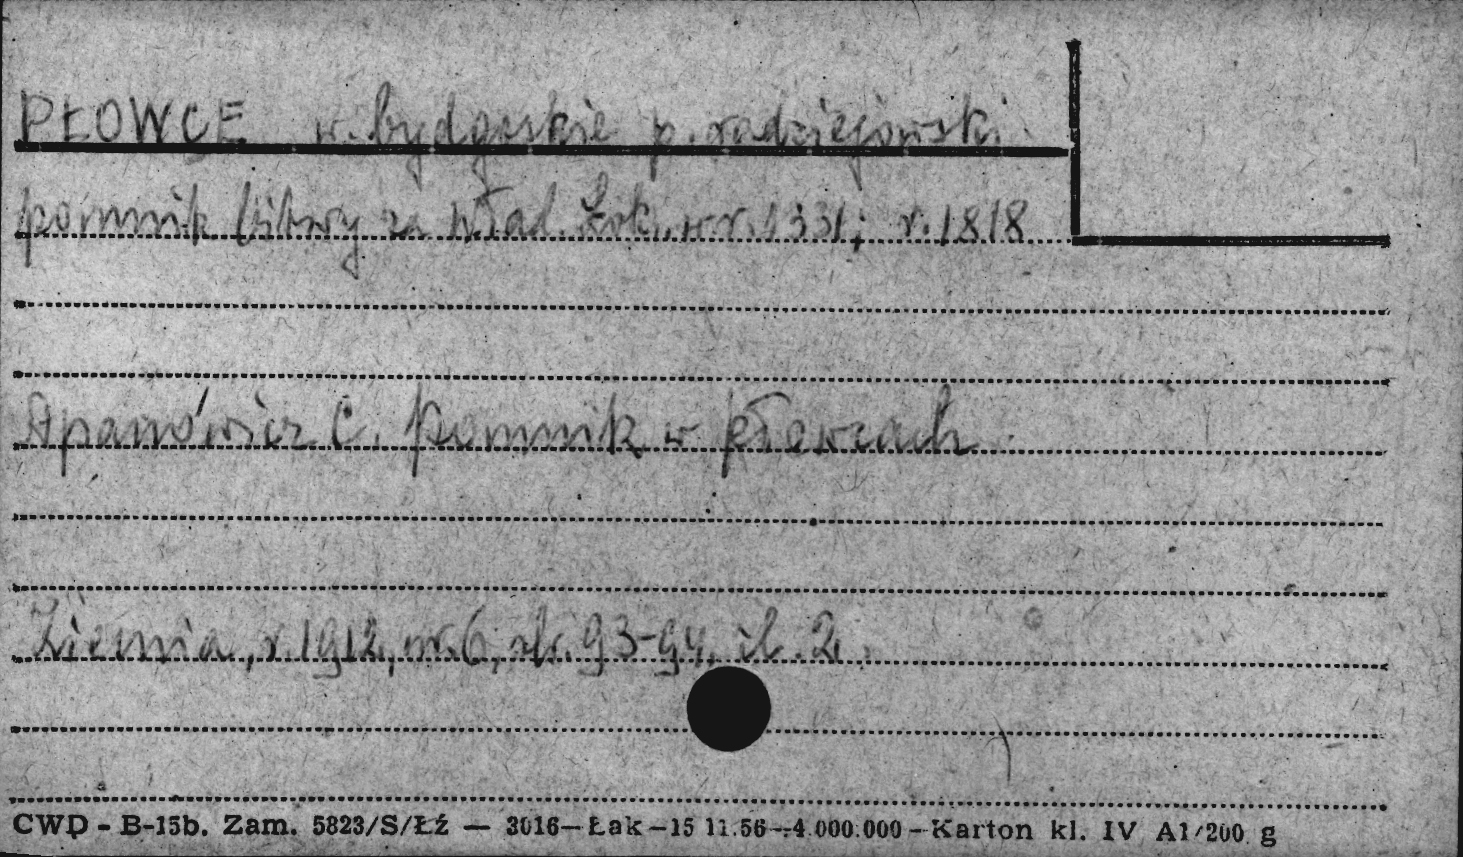 PŁOWCE w. bydgoskie p. radziejowski
pomnik bitwy za Wład. Łok. w r. 1331; r. 1818
Apanówicz C. Pomnik w Płowcach.
Ziemia, r. 1912, nr. 6, str. 93-94, il. 2.
CWD - B-15b. Zam. 5823/S/Łź — 3016 — Łak — 15 11.56 — 4.000.000 — Karton kl. IV A1/200 g